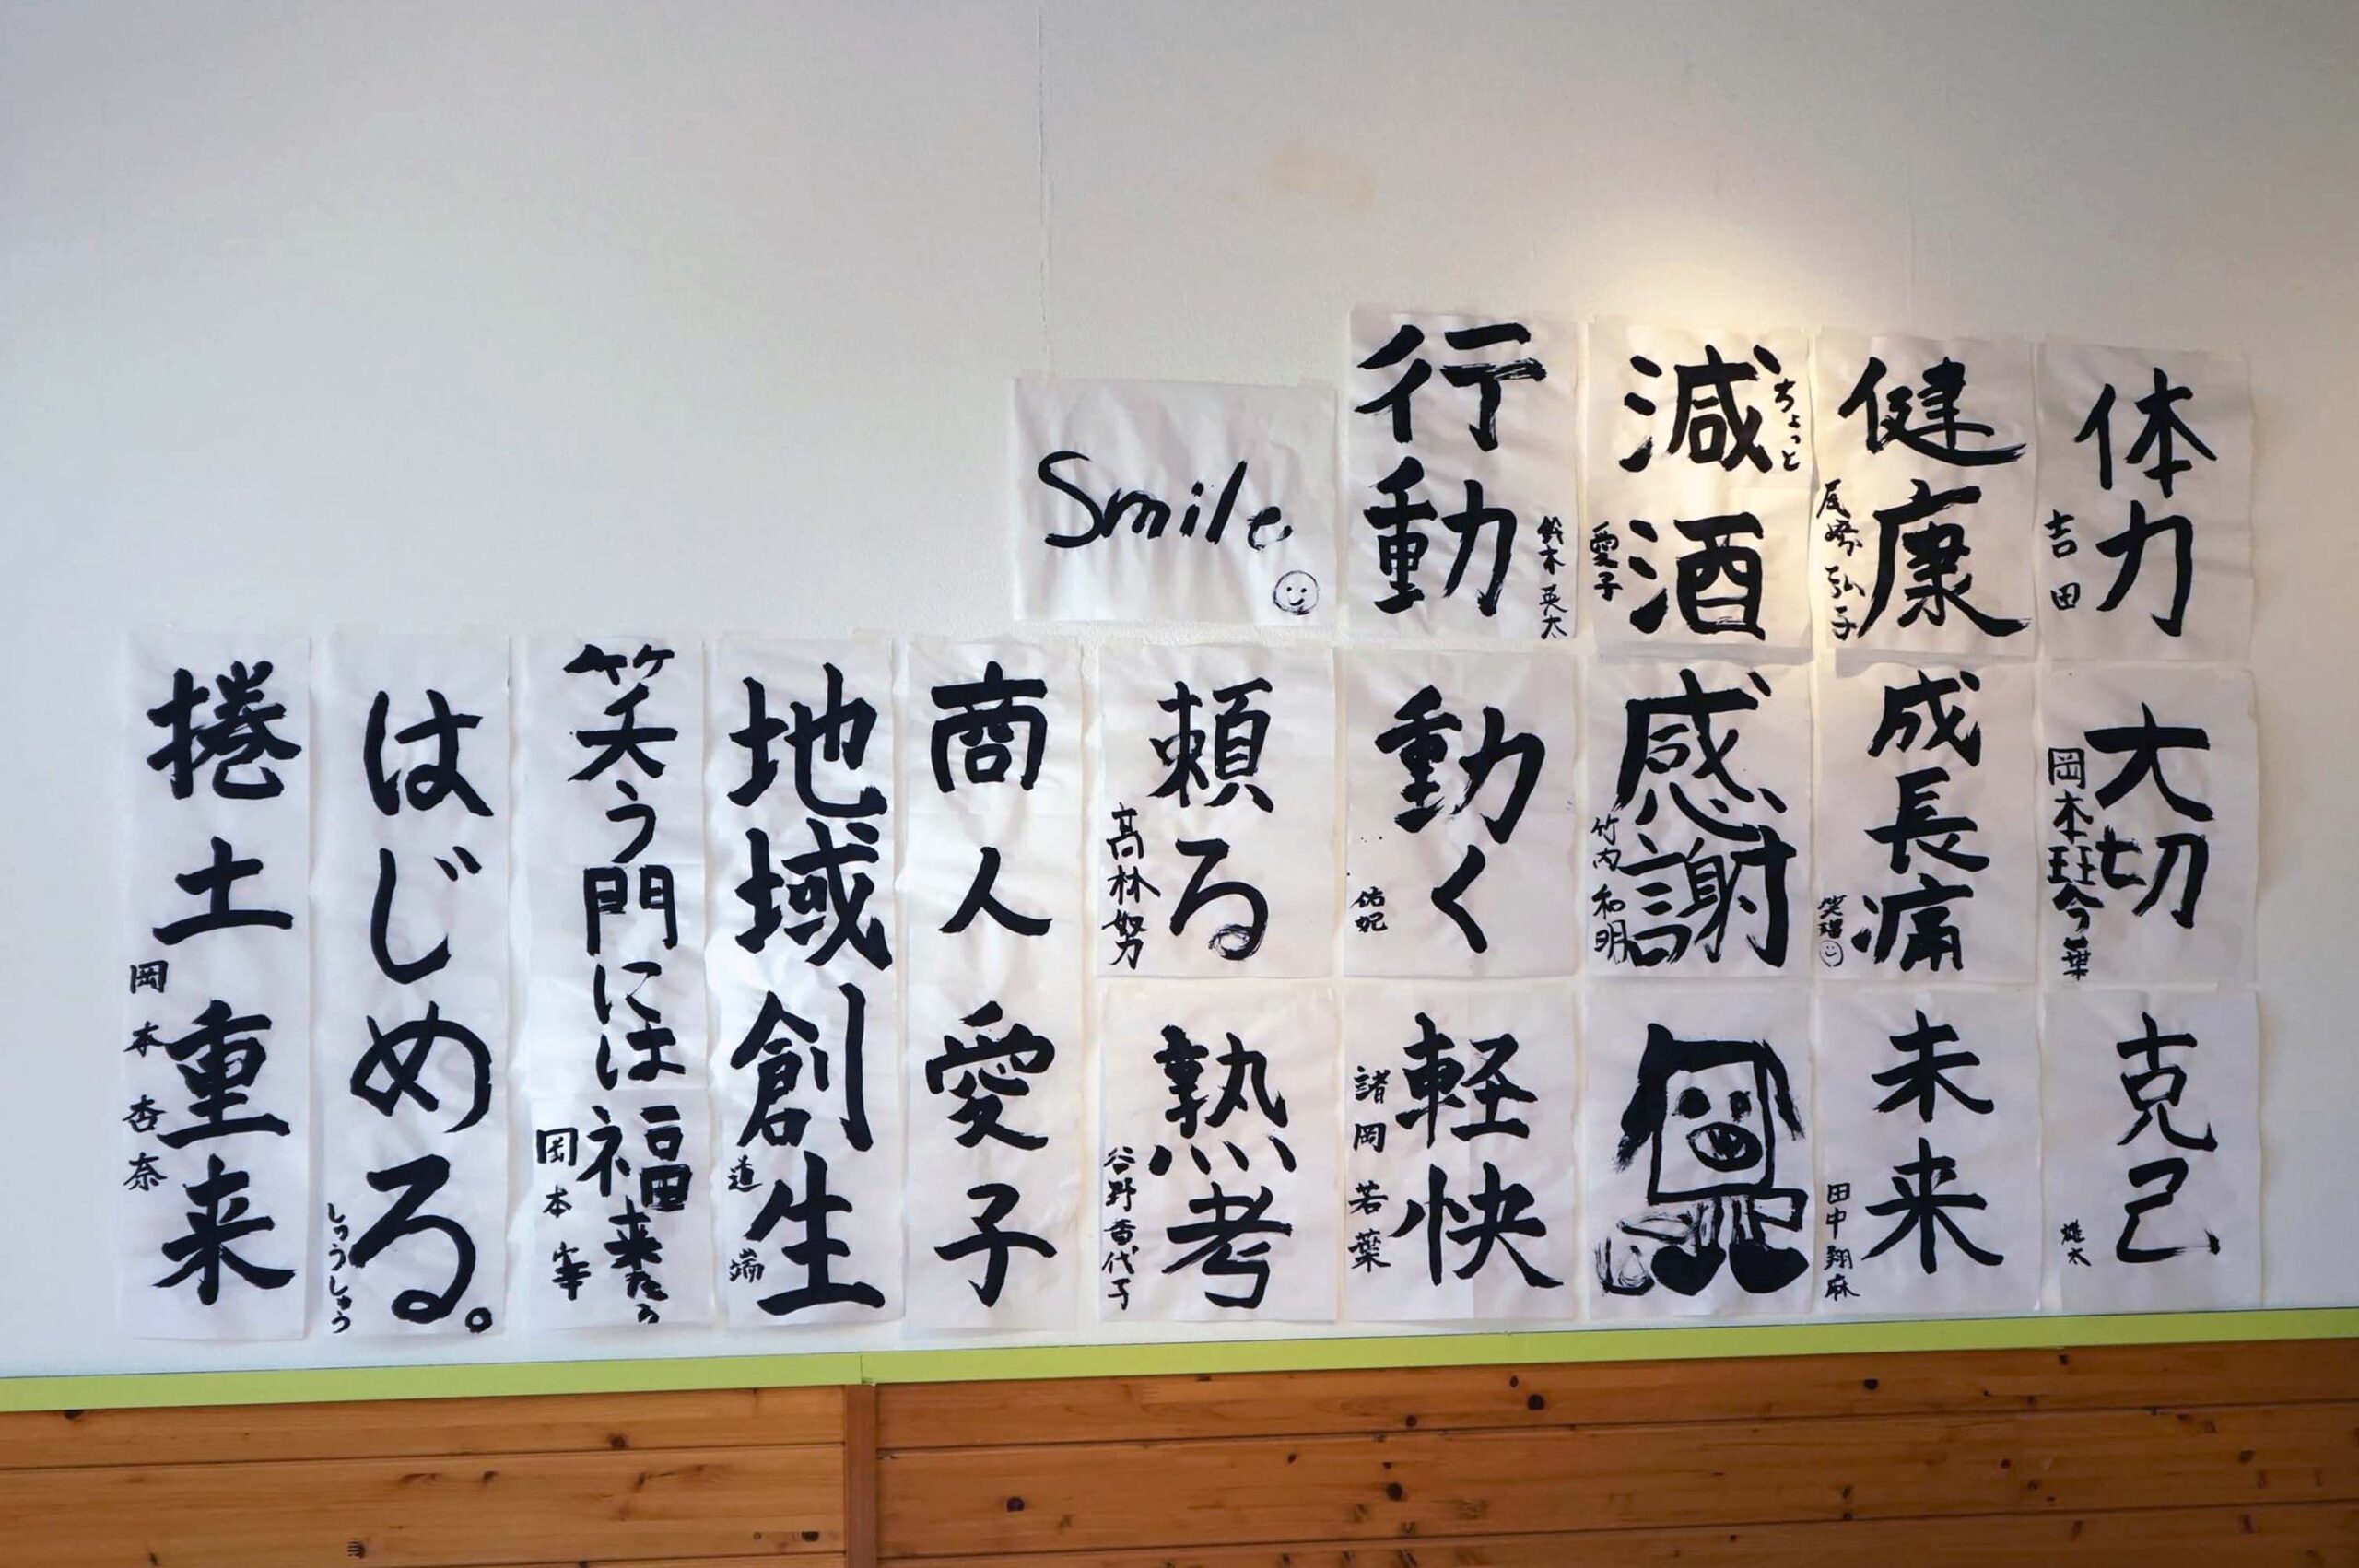 体力
吉田
健康
尾崎弘子
ちょっと
減酒
愛子
行動
鈴木英太
Smile
大切
岡本
葉
成長痛
感謝
竹内和明
動く
佑妃
頼る
髙林努
克己
雄太
未来
田中翔麻
軽快
諸岡若葉
熟考
谷野香代子
商人愛子
地域創生
道端
笑う門には福来たる
岡本
はじめる。
しゅうしゅう
捲土重来
岡本杏奈